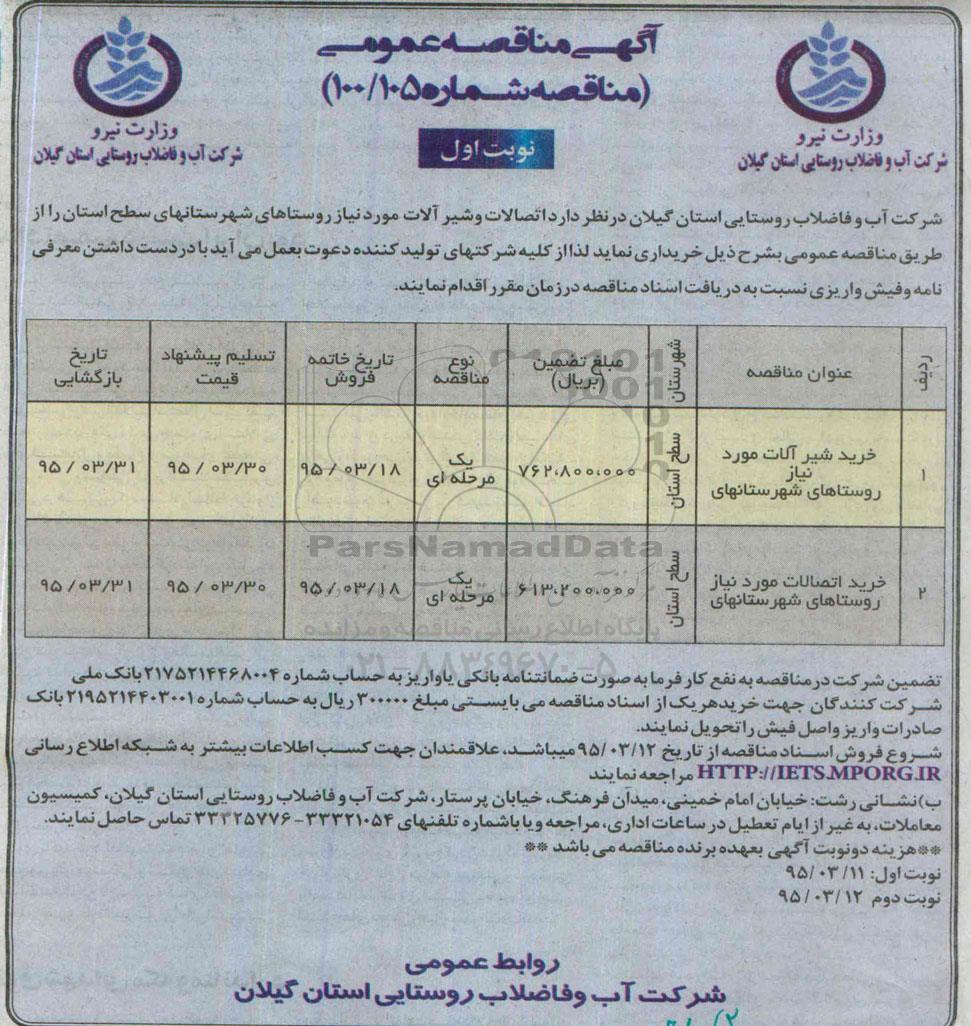 آگهی مناقصه عمومی
(مناقصه شماره ۱۰۰/۱۰۵)
نوبت اول
وزارت نیرو
شرکت آب و فاضلاب روستایی استان گیلان
وزارت نیرو
شرکت آب و فاضلاب روستایی استان گیلان
شرکت آب و فاضلاب روستایی استان گیلان در نظر دارد اتصالات و شیر آلات مورد نیاز روستاهای شهرستانهای سطح استان را از
طریق مناقصه عمومی بشرح ذیل خریداری نماید لذا از کلیه شرکتهای تولید کننده دعوت بعمل می آید با در دست داشتن معرفی
نامه و فیش واریزی نسبت به دریافت اسناد مناقصه در زمان مقرر اقدام نمایند.
ردیف | عنوان مناقصه | شهرستان | مبلغ تضمین (بریال) | نوع مناقصه | تاریخ خاتمه فروش | تسلیم پیشنهاد قیمت | تاریخ بازگشایی
۱ | خرید شیر آلات مورد نیاز روستاهای شهرستانهای | سطح استان | ۷۶۲،۸۰۰،۰۰۰ | یک مرحله ای | ۹۵ / ۰۳/۱۸ | ۹۵ / ۰۳/۳۰ | ۹۵ / ۰۳/۳۱
۲ | خرید اتصالات مورد نیاز روستاهای شهرستانهای | سطح استان | ۶۱۳،۲۰۰،۰۰۰ | یک مرحله ای | ۹۵ / ۰۳/۱۸ | ۹۵ / ۰۳/۳۰ | ۹۵ / ۰۳/۳۱
ParsNamadData
پایگاه اطلاع رسانی مناقصه و مزایده
۰۲۱-۸۸۳۴۹۶۷۰-۵
تضمین شرکت در مناقصه به نفع کارفرما به صورت ضمانتنامه بانکی یا واریز به حساب شماره ۲۱۷۵۲۱۴۴۶۸۰۰۴ بانک ملی
شرکت کنندگان جهت خرید هر یک از اسناد مناقصه می بایستی مبلغ ۳۰۰۰۰۰ ریال به حساب شماره ۲۱۹۵۲۱۴۴۰۳۰۰۱ بانک
صادرات واریز واصل فیش را تحویل نمایند.
شروع فروش اسناد مناقصه از تاریخ ۹۵/۰۳/۱۲ میباشد، علاقمندان جهت کسب اطلاعات بیشتر به شبکه اطلاع رسانی
HTTP://IETS.MPORG.IR مراجعه نمایند
ب)نشانی رشت: خیابان امام خمینی، میدان فرهنگ، خیابان پرستار، شرکت آب و فاضلاب روستایی استان گیلان، کمیسیون
معاملات، به غیر از ایام تعطیل در ساعات اداری، مراجعه و یا با شماره تلفنهای ۳۳۳۲۱۰۵۴-۳۳۳۲۵۷۷۶ تماس حاصل نمایند.
**هزینه دو نوبت آگهی بعهده برنده مناقصه می باشد **
نوبت اول: ۹۵/۰۳/۱۱
نوبت دوم ۹۵/۰۳/۱۲
روابط عمومی
شرکت آب و فاضلاب روستایی استان گیلان